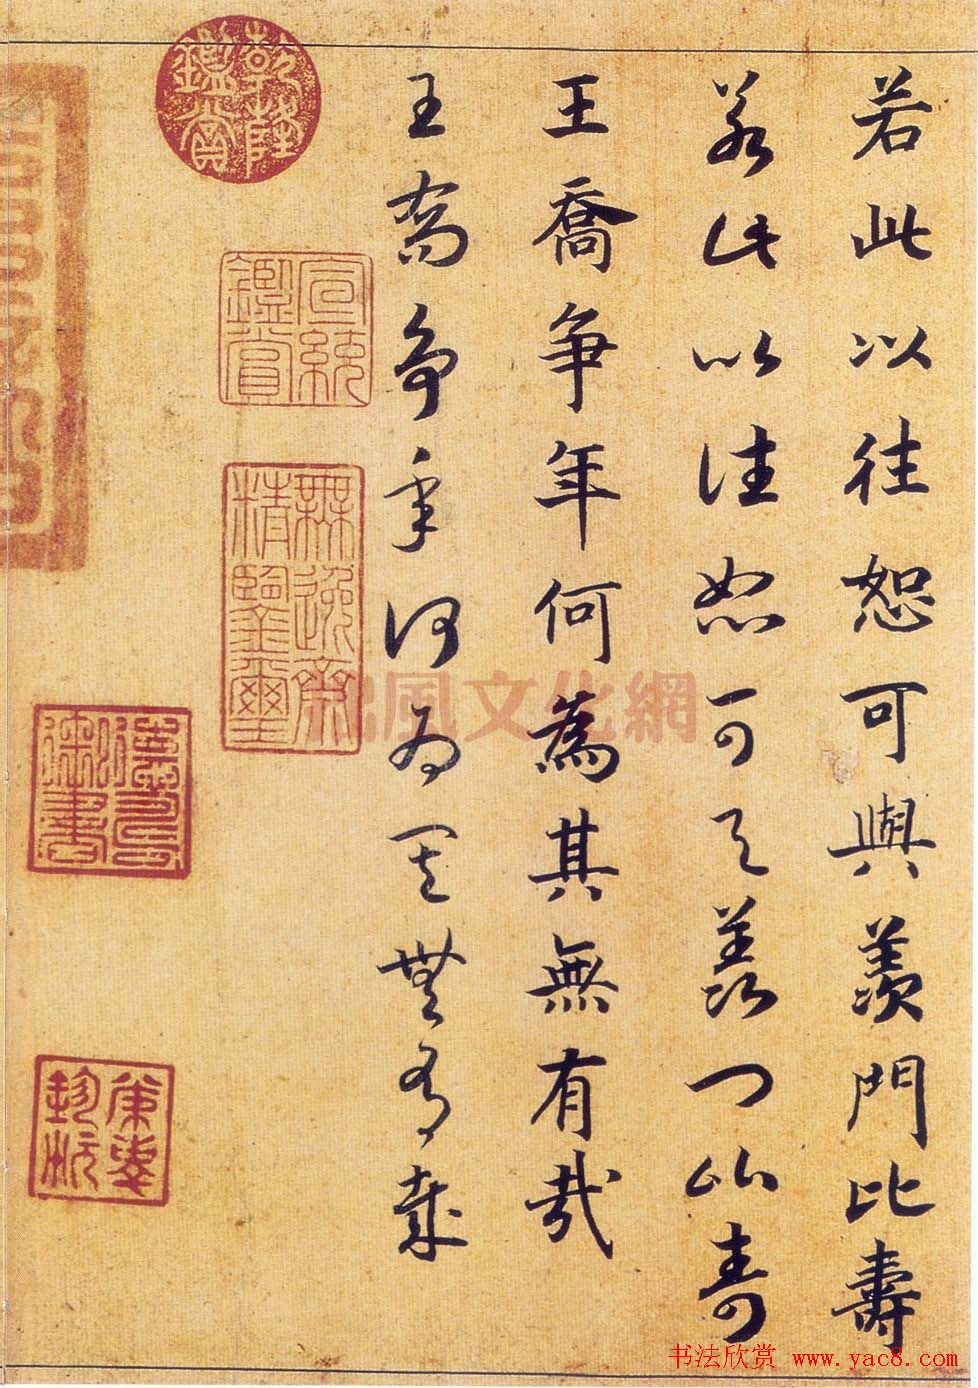 若此以往恕可與羨門比壽
若此以往恕可與羨門比壽
王喬爭年何為其無有哉
王喬爭年何為其無有哉
乾隆鑑賞
宣統鑑賞
無逸齋精鑒璽
風文化網
书法欣赏 www.yac8.com